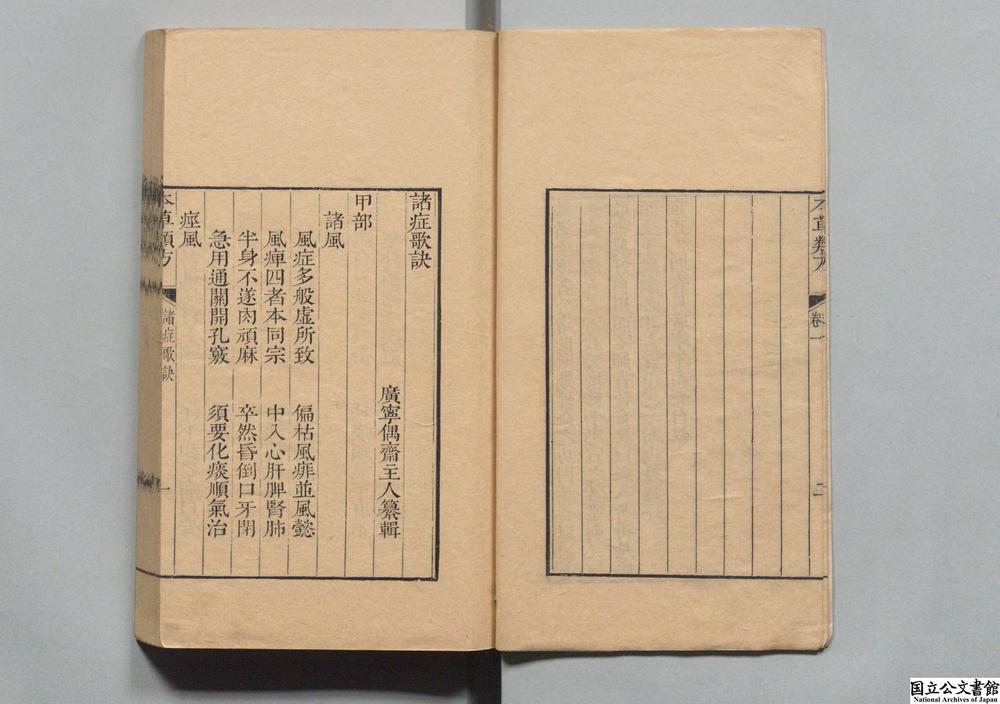 本草類方
卷一
二
諸症歌訣
廣寧偶齋主人纂輯
甲部
諸風
風症多般虛所致 偏枯風痱並風懿
風痺四者本同宗 中入心肝脾腎肺
半身不遂肉頑麻 卒然昏倒口牙閉
急用通關開孔竅 須要化痰順氣治
痙風
本草類方
諸症歌訣
一
国立公文書館
National Archives of Japan